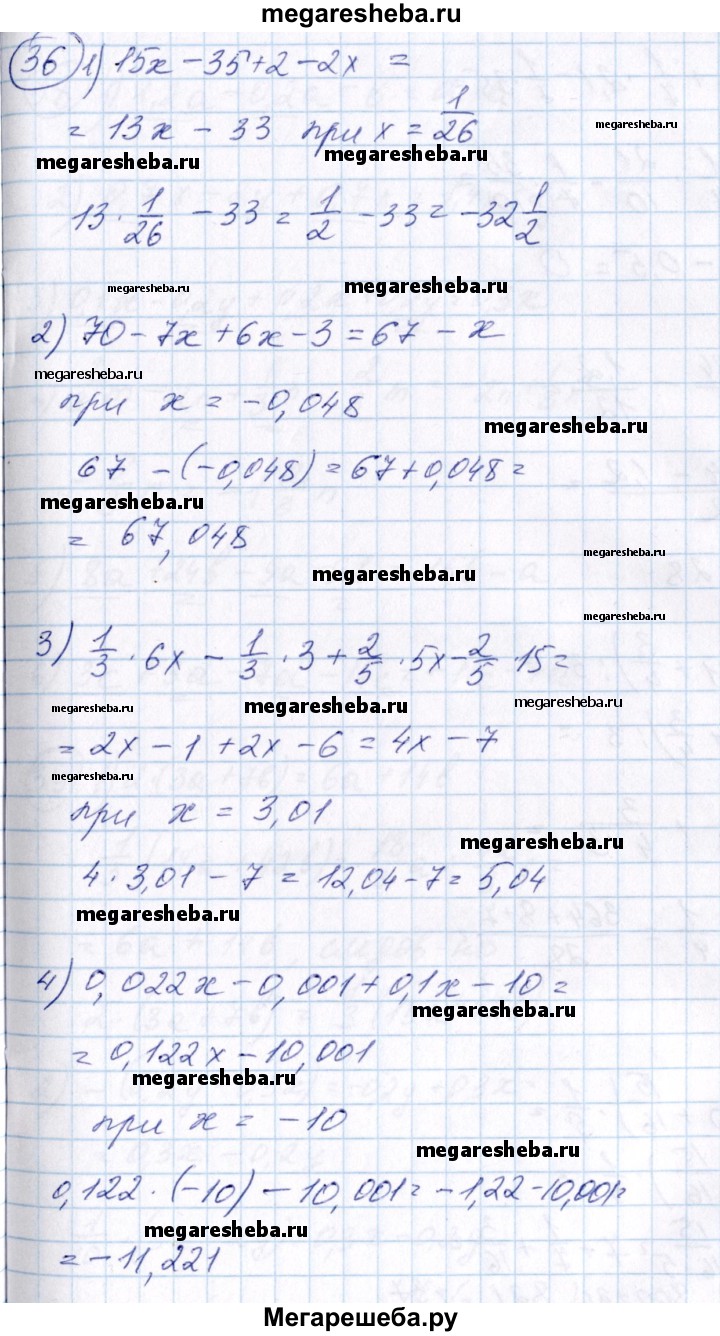 megaresheba.ru
36 1) 15x - 35 + 2 - 2x =
= 13x - 33 при x = 1/26
megaresheba.ru
megaresheba.ru
megaresheba.ru
13 · 1/26 - 33 = 1/2 - 33 = -32 1/2
megaresheba.ru
megaresheba.ru
2) 70 - 7x + 6x - 3 = 67 - x
megaresheba.ru
при x = -0,048
megaresheba.ru
67 - (-0,048) = 67 + 0,048 =
megaresheba.ru
= 67,048
megaresheba.ru
megaresheba.ru
megaresheba.ru
3) 1/3 · 6x - 1/3 · 3 + 2/5 · 5x - 2/5 · 15 =
megaresheba.ru
megaresheba.ru
megaresheba.ru
= 2x - 1 + 2x - 6 = 4x - 7
megaresheba.ru
при x = 3,01
megaresheba.ru
4 · 3,01 - 7 = 12,04 - 7 = 5,04
megaresheba.ru
4) 0,022x - 0,001 + 0,1x - 10 =
megaresheba.ru
= 0,122x - 10,001
megaresheba.ru
при x = -10
megaresheba.ru
0,122 · (-10) - 10,001 = -1,22 - 10,001 =
megaresheba.ru
= -11,221
Мегарешеба.ру